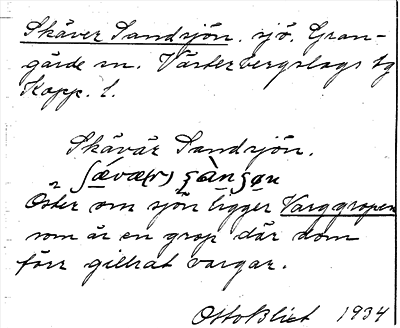 Skäver Sandsjön. sjö. Gran-
gärde sn. Västerbergslags tg
Kopp. l.
Skävär Sandsjön.
Öster om sjön ligger Varggropen
som är en grop där dom
förr gillrat vargar.
Otto Blixt 1934